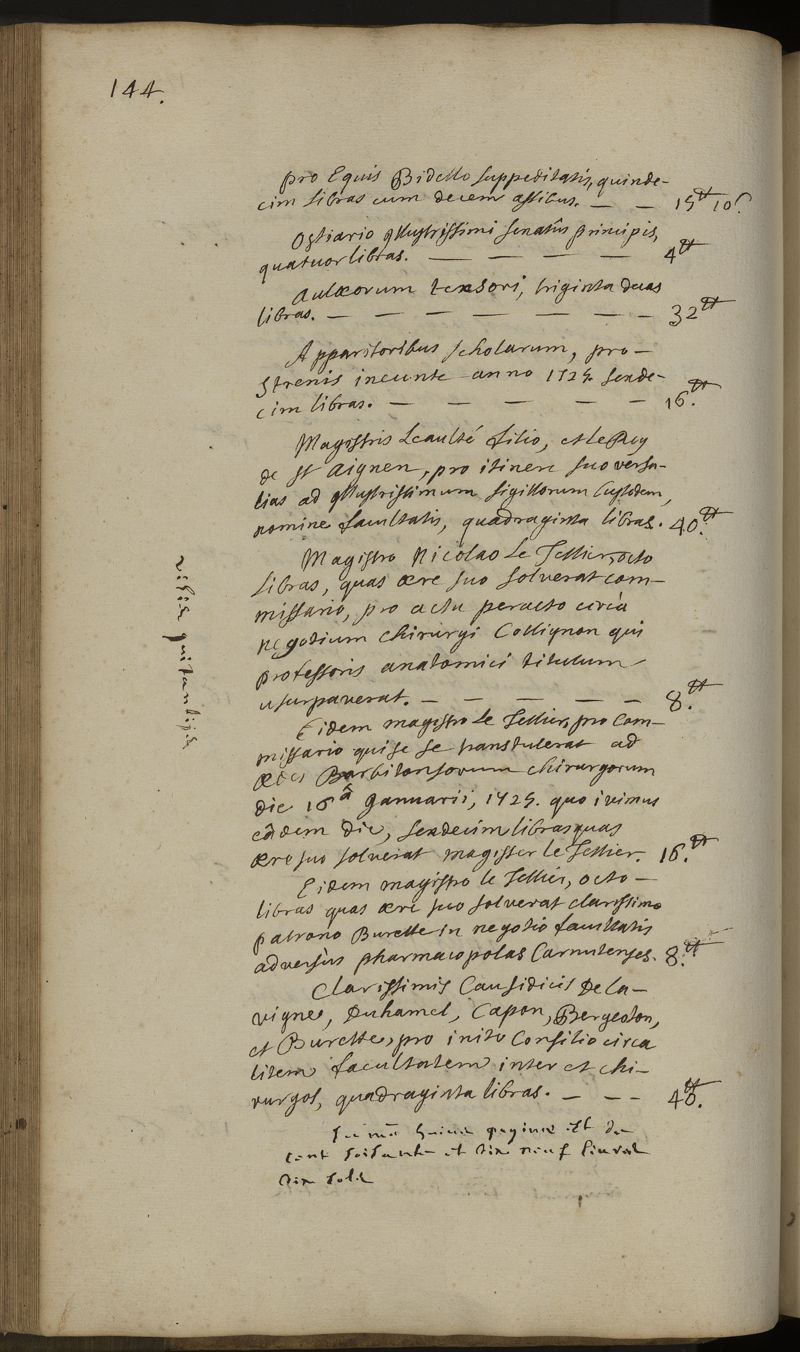 144.
pro Equis Bidello suppeditatis, quinde-
cim libras cum decem assibus. — — 15tt 10s
Ostiario illustrissimi senatûs principis,
quatuor libras. — — — — 4tt
Aulæorum tensori, triginta duas
libras. — — — — — — — 32tt
Apparitoribus scholarum, pro-
strenis ineunte anno 1725. sexde-
cim libras. — — — — — 16.tt
Magistris Leaulté filio, et Le Roy
de St Aignen, pro itinere suo versa-
lias ad illustrissimum sigillorum Custodem,
nomine facultatis, quadraginta libras. 40.tt
Magistro Nicolao Le Tellier, octo
libras, quas ære suo solverat com-
missario, pro actu peracto circà
negotium chirurgi Collignon qui
professoris anatomici titulum
usurpaverat. — — — — — 8.tt
Eidem magistro Le Tellier, pro Com-
missario qui se se transtulerat ad
ædes Barbitonsorum chirurgorum
die 16â Januarii, 1725. quo ivimus
eâdem die, sexdecim libras quas
ære suo solverat magister le Tellier. 16.tt
Eidem magistro le Tellier, octo-
libras quas ære suo solverat clarissimo
patrono Burette in negotio facultatis
adversùs pharmacopolas Carnutenses. 8.tt
Clarissimis Causidicis De la-
vigne, Duhamel, Capon, Bergeoton,
et Burette, pro inito Consilio circa
litem facultatem inter et chi-
rurgos, quadraginta libras. — — — 40.tt
Summa huius paginæ est de
cent soixante et dix neuf livres
dix sols
visis quitantijs